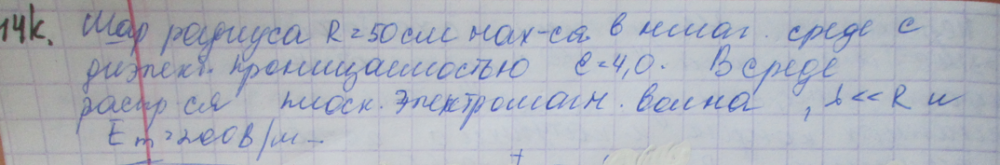 14к. Шар радиуса R=50см нах-ся в немаг. среде с
диэлект. проницаемостью ε=4,0. В среде
распр-ся плоск. электромагн. волна, λ<<R и
Em=200В/м